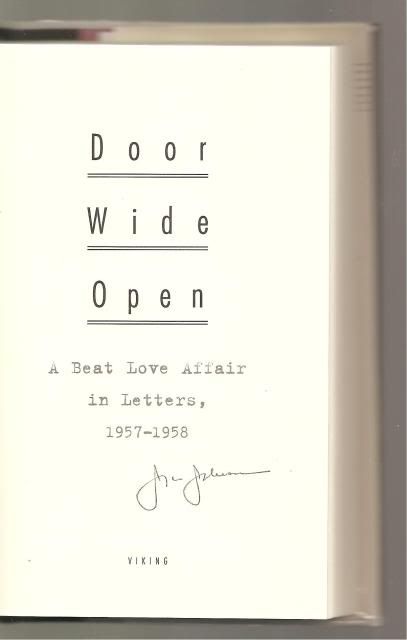 Door
Wide
Open
A Beat Love Affair
in Letters,
1957-1958
Joyce Johnson
VIKING